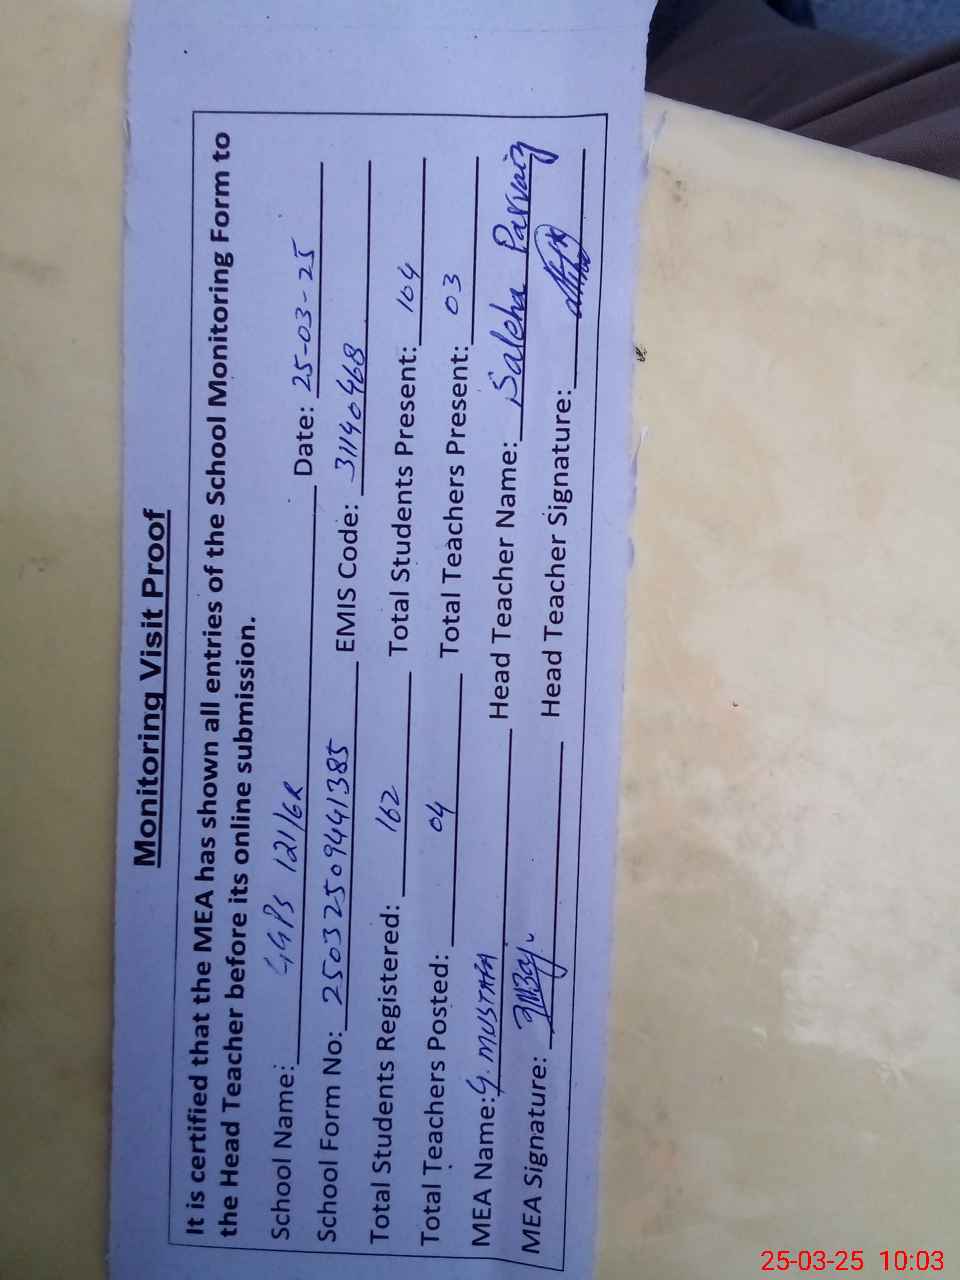 Monitoring Visit Proof
It is certified that the MEA has shown all entries of the School Monitoring Form to
the Head Teacher before its online submission.
School Name: GGPS 121/6R Date: 25-03-25
School Form No: 25032509441385 EMIS Code: 31140468
Total Students Registered: 162 Total Students Present: 104
Total Teachers Posted: 04 Total Teachers Present: 03
MEA Name: G. MUSTAFA Head Teacher Name: Saleha Parvaiz
MEA Signature: Head Teacher Signature:
25-03-25 10:03